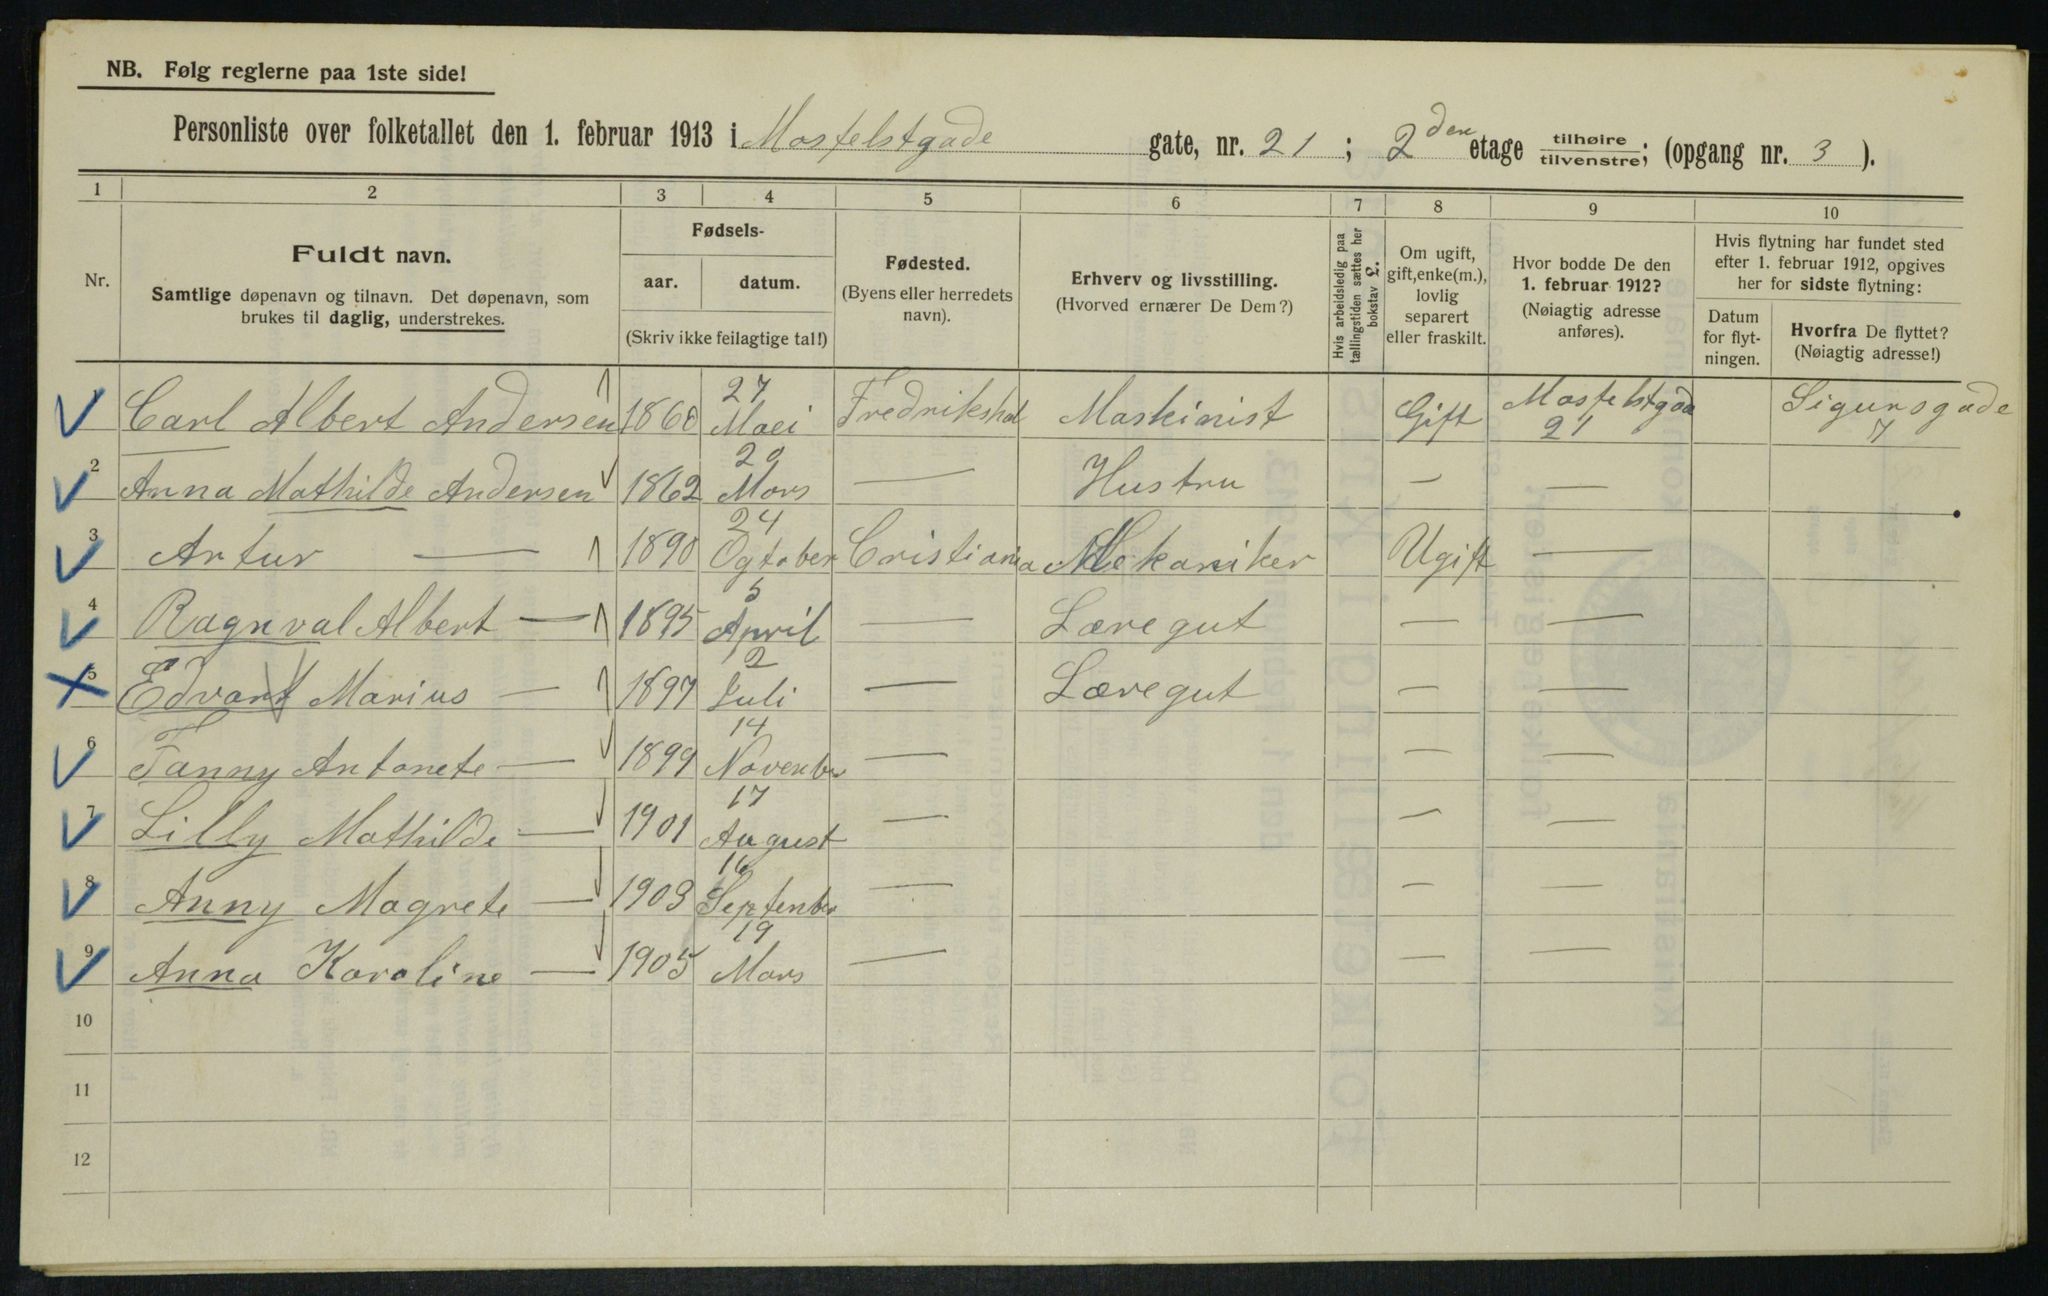 NB. Følg reglerne paa 1ste side!
Personliste over folketallet den 1. februar 1913 i Mostelstgade gate, nr. 21 ; 2den etage tilhøire tilvenstre; (opgang nr. 3 ).
1 2 3 4 5 6 7 8 9 10
Nr.
Fuldt navn.
Samtlige døpenavn og tilnavn. Det døpenavn, som
brukes til daglig, understrekes.
Fødsels-
aar. datum.
(Skriv ikke feilagtige tal!)
Fødested.
(Byens eller herredets
navn).
Erhverv og livsstilling.
(Hvorved ernærer De Dem?)
Hvis arbeidsledig paa
tællingstiden sættes her
bokstav L.
Om ugift,
gift, enke(m.),
lovlig
separert
eller fraskilt.
Hvor bodde De den
1. februar 1912?
(Nøiagtig adresse
anføres).
Hvis flytning har fundet sted
efter 1. februar 1912, opgives
her for sidste flytning:
Datum
for flyt-
ningen.
Hvorfra De flyttet?
(Nøiagtig adresse!)
1 Carl Albert Andersen 1860 27 Maei Fredrikshal Maskinist Gift Mostelstgade 21 Sigursgade 7
2 Anna Mathilde Andersen 1862 29 Mars — Hustru — —
3 Artur — 1890 24 Ogtober Cristiania Mekaniker Ugift —
4 Ragnval Albert — 1895 5 April — Læregut — —
5 Edvart Marius — 1897 2 Juli — Læregut — —
6 Fanny Antonete — 1899 14 November — — —
7 Lilly Mathilde — 1901 17 August — — —
8 Anny Magrete — 1903 16 September — — —
9 Anna Karoline — 1905 19 Mars — — —
10
11
12